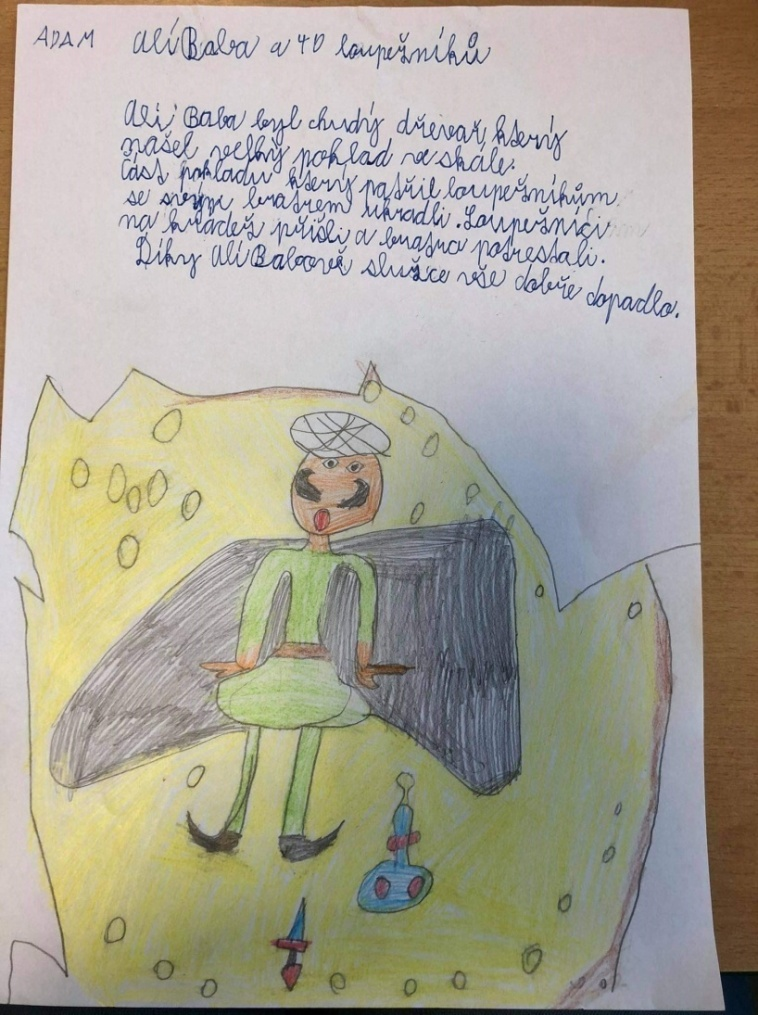 ADAM Alí Baba a 40 loupežníků
Alí Baba byl chudý dřevař, který
našel velký poklad ve skále.
část pokladu který patřil loupežníkům
se svým bratrem ukradli. Loupežníci
na krádež přišli a bratra potrestali.
Díky Alí Babově služce vše dobře dopadlo.